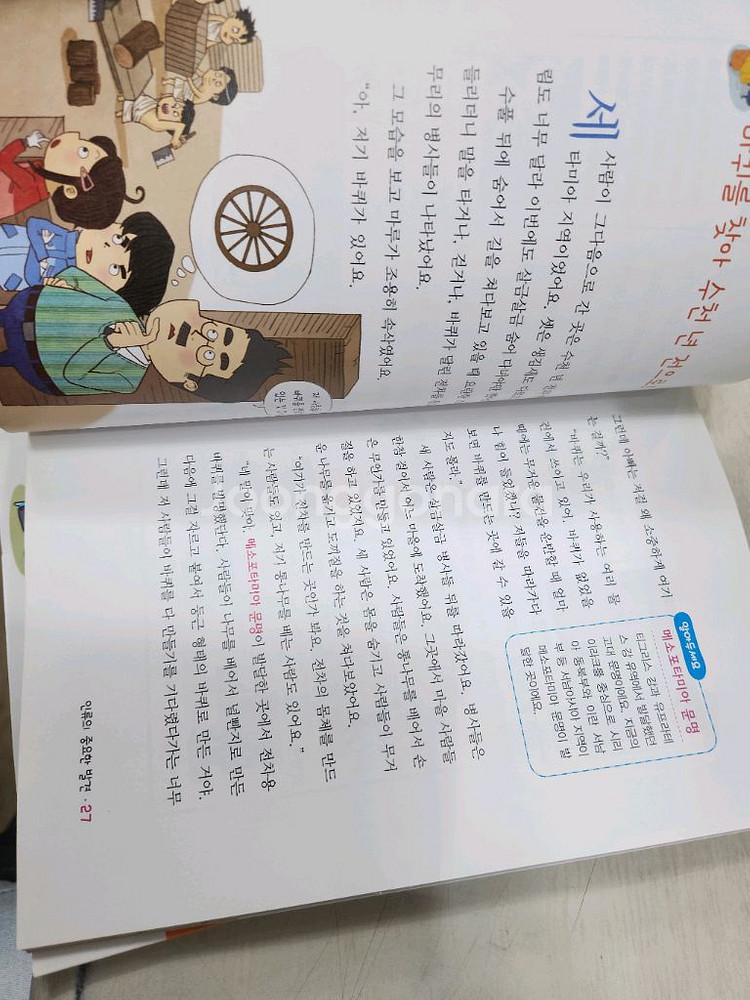 바퀴를 찾아 수천 년 전으로
세 사람이 그다음으로 간 곳은 수천 년
타미아 지역이었어요. 셋은 생김새도
림도 너무 달라 이번에도 살금살금 숨어 다녀야만
수풀 뒤에 숨어서 길을 쳐다보고 있을 때
들리더니 말을 타거나, 걷거나, 바퀴가 달린 전차를
무리의 병사들이 나타났어요.
그 모습을 보고 마루가 조용히 속삭였어요.
“아, 저기 바퀴가 있어요.
그런데 아빠는 저걸 왜 소중하게 여기
는 걸까?”
“바퀴는 우리가 사용하는 여러 물
건에서 쓰이고 있어. 바퀴가 없었을
때에는 무거운 물건을 운반할 때 얼마
나 힘이 들었겠니? 저들을 따라가다
보면 바퀴를 만드는 곳에 갈 수 있을
지도 몰라.”
세 사람은 살금살금 병사들 뒤를 따라갔어요. 병사들은
한참 걸어서 어느 마을에 도착했어요. 그곳에서 마을 사람들
은 무언가를 만들고 있었어요. 사람들은 통나무를 베어서 손
질을 하고 있었지요. 세 사람은 몸을 숨기고 사람들이 무거
운 나무를 옮기고 도끼질을 하는 것을 쳐다보았어요.
“여기가 전차를 만드는 곳인가 봐요. 전차의 몸체를 만드
는 사람들도 있고, 저기 통나무를 베는 사람도 있어요.”
“네 말이 맞아. 메소포타미아 문명이 발달한 곳에서 전차용
바퀴를 발명했단다. 사람들이 나무를 베어서 널빤지로 만든
다음에 그걸 자르고 붙여서 둥근 형태의 바퀴로 만든 거야.
그런데 저 사람들이 바퀴를 다 만들기를 기다렸다가는 너무
알아두세요
메소포타미아 문명
티그리스 강과 유프라테
스 강 유역에서 발달했던
고대 문명이에요. 지금의
이라크를 중심으로 시리
아 동북부와 이란 서남
부 등 서남아시아 지역이
메소포타미아 문명이 발
달한 곳이에요.
인류의 중요한 발견 · 27
joonggonara